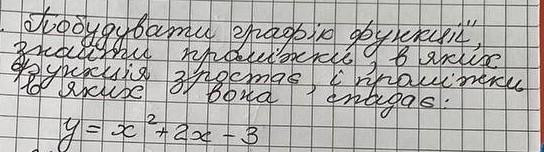 Побудувати графік функції",
знайти проміжки, в яких
функція зростає, і проміжки
в яких вона спадає:
y = x² + 2x - 3